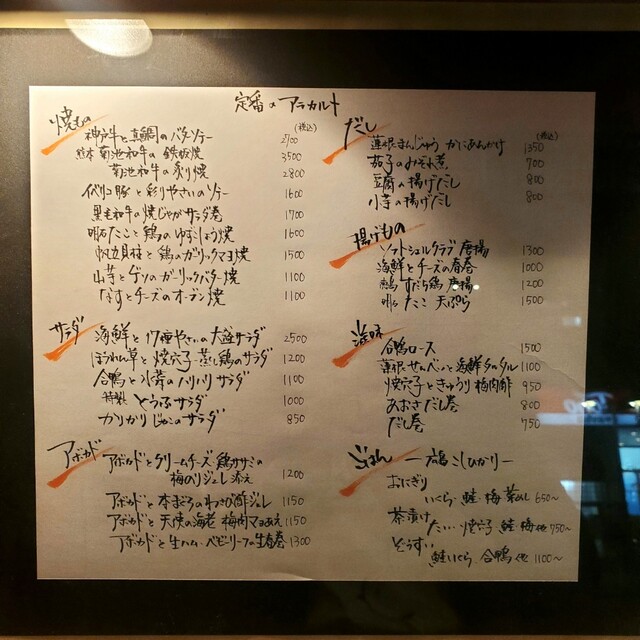 定番のアラカルト
焼もの
(税込)
神戸牛と真鯛のバターソテー 2700
熊本 菊池和牛の 鉄板焼 3500
菊池和牛の炙り焼 2800
イベリコ豚と彩りやさいのソテー 1600
黒毛和牛の焼じゃがサラダ巻 1700
明石たこと鶏のゆずこしょう焼 1600
帆立貝柱と鶏のガーリックマヨ焼 1500
山芋とゲソのガーリックバター焼 1100
なすとチーズのオーブン焼 1100
サラダ
海鮮と17種やさいの大盛サラダ 2500
ほうれん草と焼穴子 蒸し鶏のサラダ 1200
合鴨と水菜のハリハリサラダ 1100
特製 とうふサラダ 1000
カリカリじゃこのサラダ 850
アボカド
アボカドとクリームチーズ 鶏ササミの
梅のりジュレ添え 1200
アボカドと本まぐろのわさび酢ジュレ 1150
アボカドと天使の海老 梅肉マヨあえ 1150
アボカドと生ハム・ベビーリーフの生春巻 1300
だし
(税込)
蓮根まんじゅう かにあんかけ 1350
茄子のみぞれ煮 700
豆腐の揚げだし 800
小芋の揚げだし 800
揚げもの
ソフトシェルクラブ唐揚 1300
海鮮とチーズの春巻 1000
すだち鶏 唐揚 1200
明石たこ 天ぷら 1500
合鴨ロース 1500
蓮根せんべいと海鮮タルタル 1100
焼穴子ときゅうり梅肉酢 950
あおさだし巻 800
だし巻 750
ごはん
こしひかり
おにぎり
いくら・鮭・梅 菜めし 650〜
茶漬け
たい・焼穴子 鮭 梅他 750〜
ぞうすい
鮭いくら 合鴨 他 1100〜